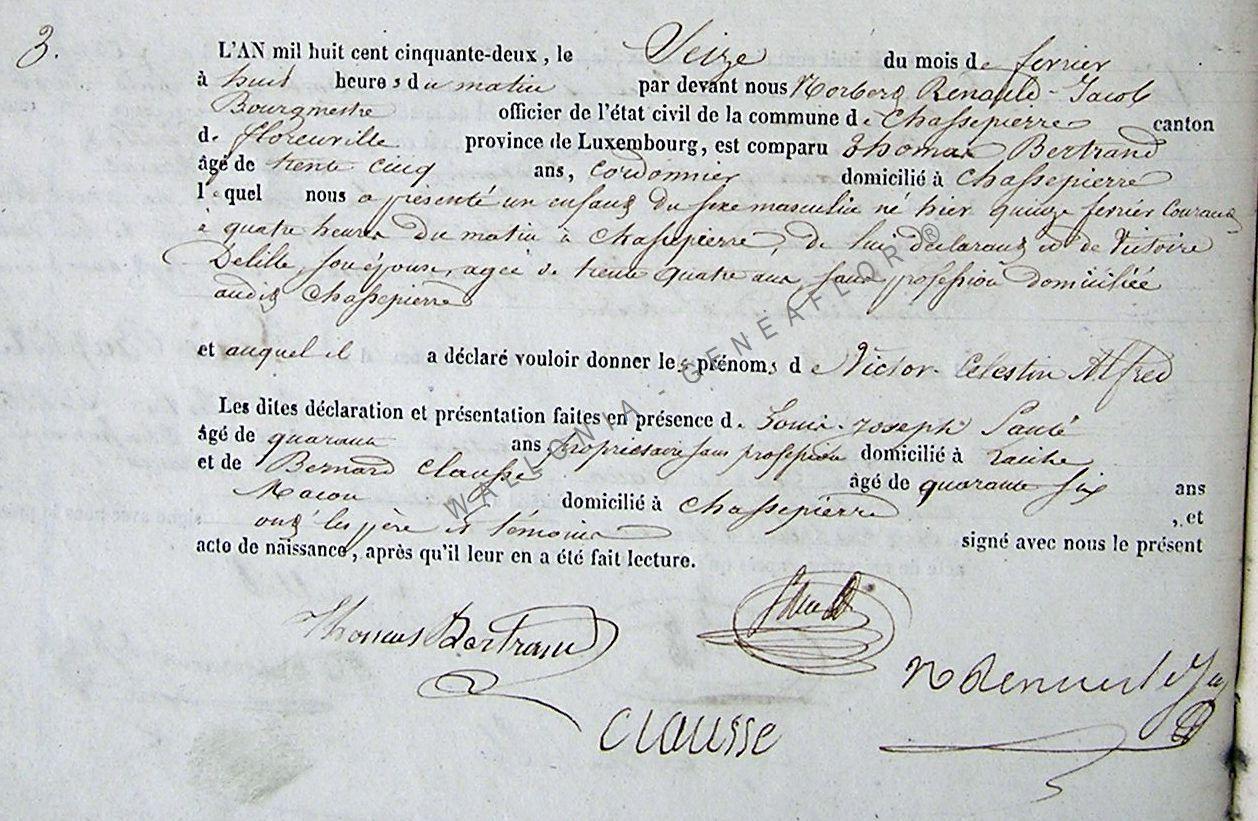 3.
L'AN mil huit cent cinquante-deux, le Seize du mois de fevrier
à huit heures du matin par devant nous Norbert Renauld-Jacob
Bourgmestre officier de l'état civil de la commune de Chassepierre canton
de florenville province de Luxembourg, est comparu Thomas Bertrand
âgé de trente cinq ans, cordonnier domicilié à Chassepierre
lequel nous a présenté un enfant du sexe masculin né hier quinze fevrier Courant
à quatre heures du matin à Chassepierre de lui declarant et de Victoire
Delille, son épouse, agée de trente quatre ans, sans profession domiciliée
audit Chassepierre
et auquel il a déclaré vouloir donner les prénoms de Victor Celestin Alfred
Les dites déclaration et présentation faites en présence de Louis Joseph
âgé de quarante ans propriétaire sans profession domicilié à
et de Bernard Clausse âgé de quarante six ans
Macon domicilié à Chassepierre , et
ont les père et témoins signé avec nous le présent
acte de naissance, après qu'il leur en a été fait lecture.
Thomas Bertrand
Clausse
WALLONIA GENEAFLOR®